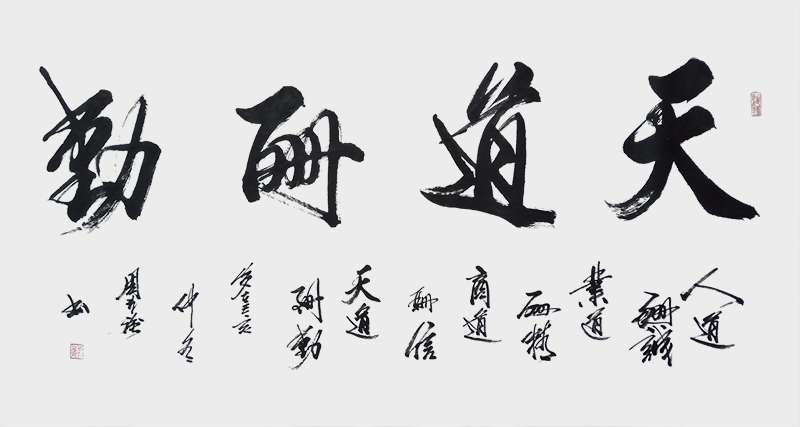 天道酬勤
人道
酬誠
業道
酬精
商道
酬信
天道
酬勤
书